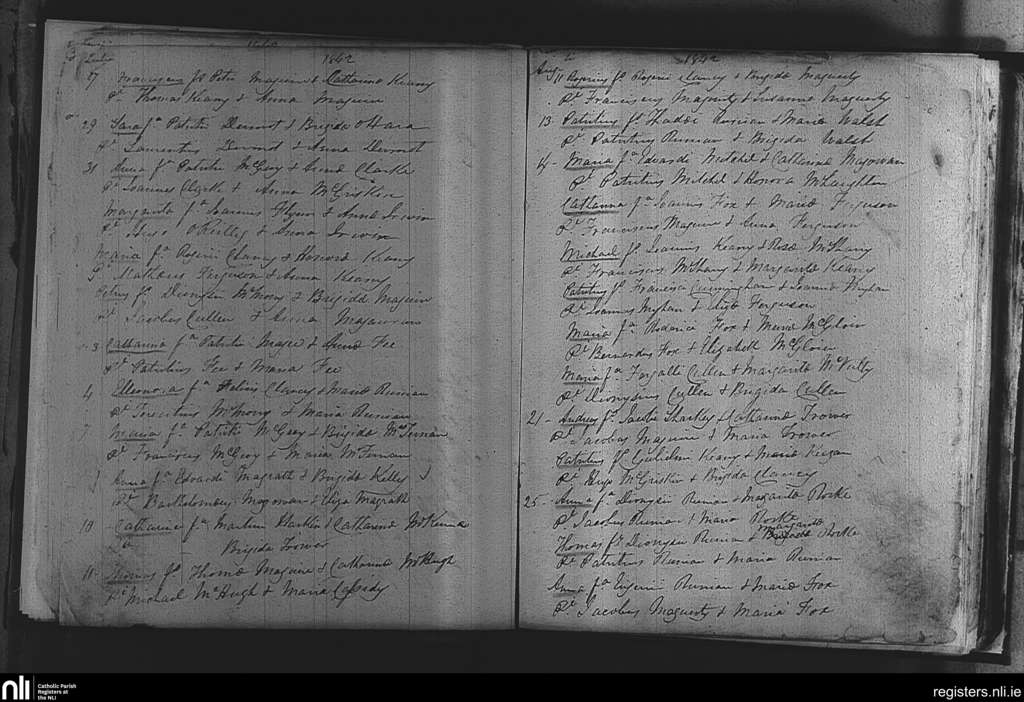 1842
27 Franciscus fs Petri Maguire & Catharina Keany
Pt Thomas Keany & Anna Maguire
29 Sara fa Patritii Dermot & Brigida O Hara
Pt Laurentius Dermot & Anna Dermot
31 Anna fa Patritii McGoey & Clarke
Pt Joannes Clarke & Anna McGriskin
Margarita fa Joannis Flynn & Anna Irwin
Pt O Reilly & Anna Irwin
Maria fa Rogerii Clancy & Honora Keany
Pt Matheus Ferguson & Anna Keany
Petrus fs Dionysii McMorry & Brigida Maguire
Pt Jacobus Cullen & Anna Magowran
3 Catharina fa Patritii Magee & Anna Fee
Pt Patritius Fee & Maria Fee
4 Elleonora fa Clancy & Maria Runian
Pt Terentius McMorry & Maria Runian
7 Maria fa Patritii McGoey & Brigida McTernan
Pt Franciscus McGoey & Maria McTernan
Anna fa Edvardi Magrath & Brigida Kelley
Pt Bartholomeus Magowan & Eliza Magrath
10 Catharine fa Martini Harkin & Catharina McKenna
Brigida Trower
11 Thomas fs Thomae Maguire & Catharina McHugh
Pt Michael McHugh & Maria Cassidy
1842
Aug 11 fs Rogerii Clancy & Brigida Maguerty
Pt Franciscus Maguerty & Susanna Maguerty
13 Patritius fs Thadei Runian & Maria Walsh
Pt Patritius Runian & Brigida Walsh
14 - Maria fa Edvardi Mitchel & Catharina Magowan
Pt Patritius Mitchel & Honora McLaughlin
Catharina fa Joannis Fox & Maria Ferguson
Pt Franciscus Maguire & Anna Ferguson
Michael fs Joannis Keany & Rosa McSharry
Pt Franciscus McSharry & Margarita Keany
Patritius fs Francisci Cunningham & Joanna
Pt Joannes & Eliza Ferguson
Maria fa Fox & Maria McGloin
Pt Bernardus Fox & Elizabeth McGloin
Maria fa Fergalli Cullen & Margarita McNulty
Pt Dionysius Cullen & Brigida Cullen
21 - Andreas fs Jacobi Sharkey & Catharina Trower
Pt Jacobus Maguire & Maria Trower
Patritius fs Gulielmi Keany & Maria Keegan
Pt Hugo McGriskin & Brigida Clancy
25 - Anna fa Dionysii Runian & Margarita Rorke
Pt Jacobus Runian & Maria Rorke
Thomas fs Dionysii Runian & Margarita Rorke
Pt Patritius Runian & Maria Runian
Anna fa Eugenii Runian & Maria Fox
Pt Jacobus Maguerty & Maria Fox
nli Catholic Parish
Registers at
the NLI
registers.nli.ie